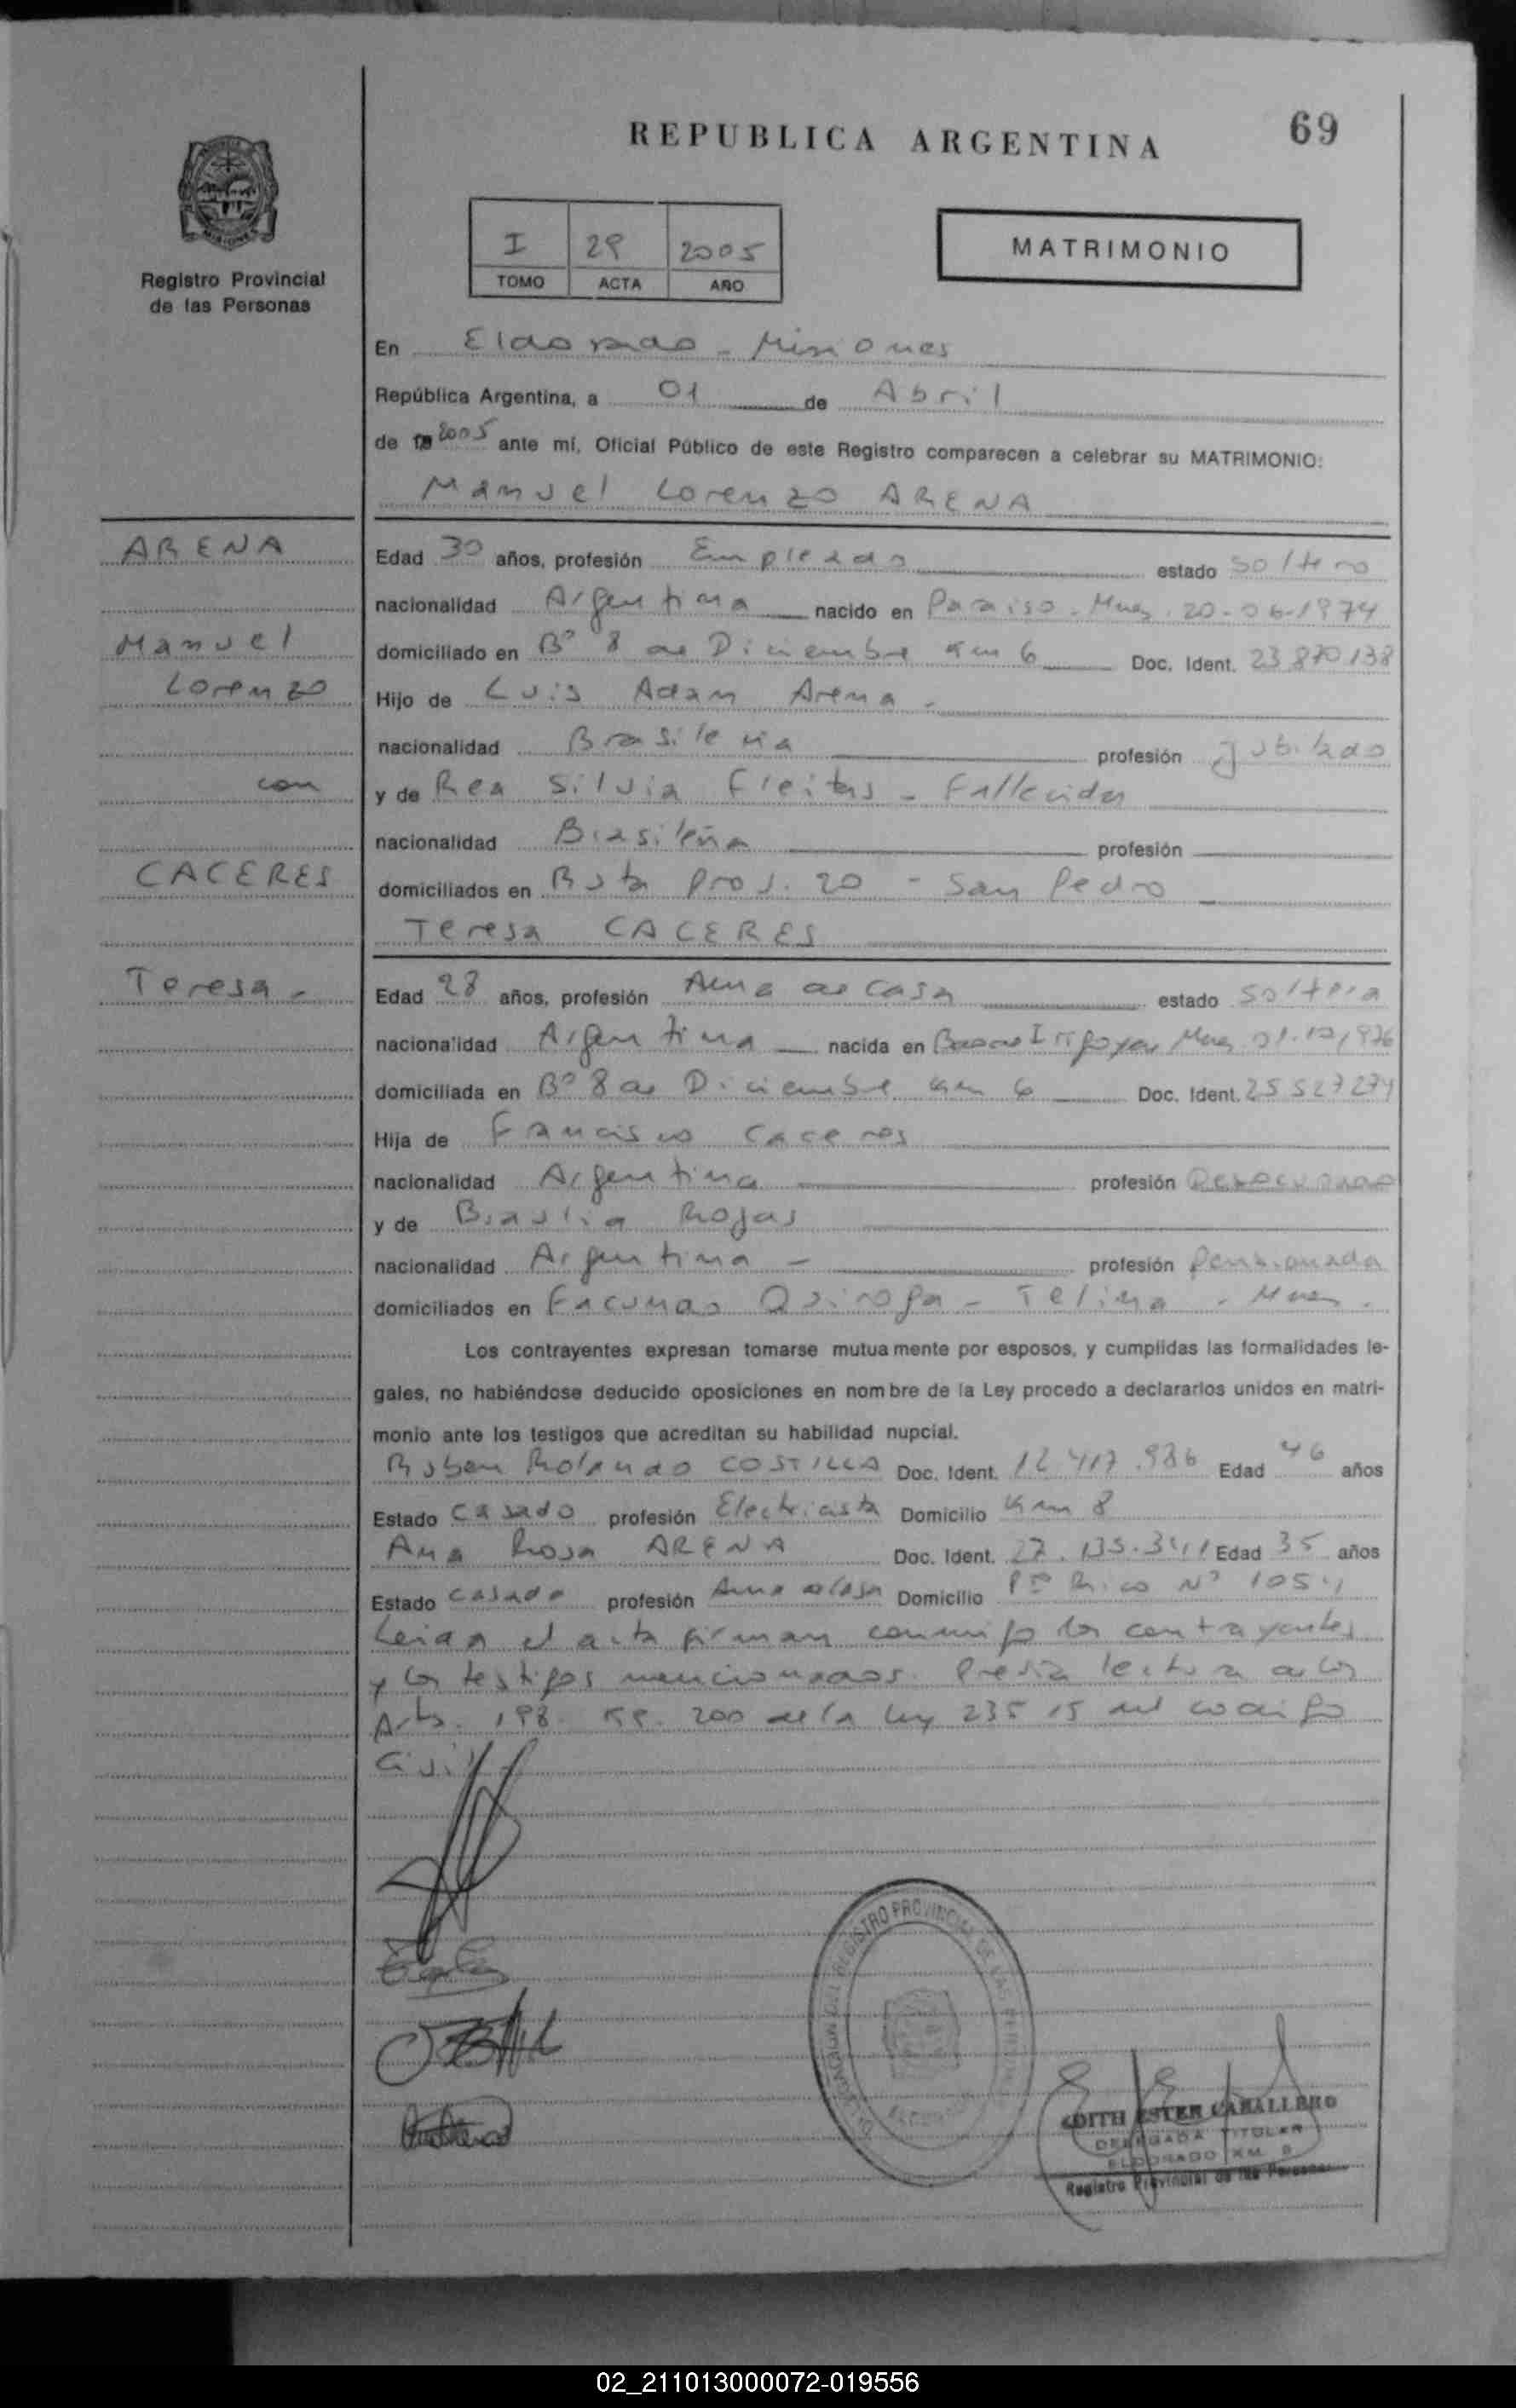 REPUBLICA ARGENTINA
69
I 29 2005
TOMO ACTA AÑO
MATRIMONIO
Registro Provincial
de las Personas
En Eldorado - Misiones
República Argentina, a 01 de Abril
de 2005 ante mí, Oficial Público de este Registro comparecen a celebrar su MATRIMONIO:
Manuel Lorenzo ARENA
ARENA
Manuel
Lorenzo
con
CACERES
Teresa -
Edad 30 años, profesión Empleado estado soltero
nacionalidad Argentina nacido en Paraiso - Mnes. 20-06-1974
domiciliado en Bº 8 de Diciembre Km 6 Doc. Ident. 23 870 138
Hijo de Luis Adan Arena -
nacionalidad Brasileña profesión Jubilado
y de Rea Silvia Freitas - Fallecida
nacionalidad Brasileña profesión
domiciliados en Ruta Prov. 20 - San Pedro
Teresa CACERES
Edad 28 años, profesión Ama de casa estado soltera
nacionalidad Argentina nacida en Irigoyen Mnes
domiciliada en Bº 8 de Diciembre Km 6 Doc. Ident. 25 527 274
Hija de Francisco Caceres
nacionalidad Argentina profesión
y de Rojas
nacionalidad Argentina - profesión Pensionada
domiciliados en Facundo Quiroga - - Mnes.
Los contrayentes expresan tomarse mutuamente por esposos, y cumplidas las formalidades le-
gales, no habiéndose deducido oposiciones en nombre de la Ley procedo a declararlos unidos en matri-
monio ante los testigos que acreditan su habilidad nupcial.
Ruben Rolando COSTILLA Doc. Ident. 12 417.986 Edad 46 años
Estado Casado profesión Electricista Domicilio Km 8
Ana Rosa ARENA Doc. Ident. Edad 35 años
Estado casada profesión Ama de casa Domicilio Pto Rico Nº
Leida el acta firman conmigo los contrayentes
y los testigos mencionados. Previa lectura de los
Arts. 198. 199. 200 de la Ley 235 15 del codigo
Civil
DELEGACION DEL REGISTRO PROVINCIAL DE LAS PERSONAS
EDITH ESTER CABALLERO
DELEGADA TITULAR
ELDORADO KM. 8
Registro Provincial de las Personas
02_211013000072-019556